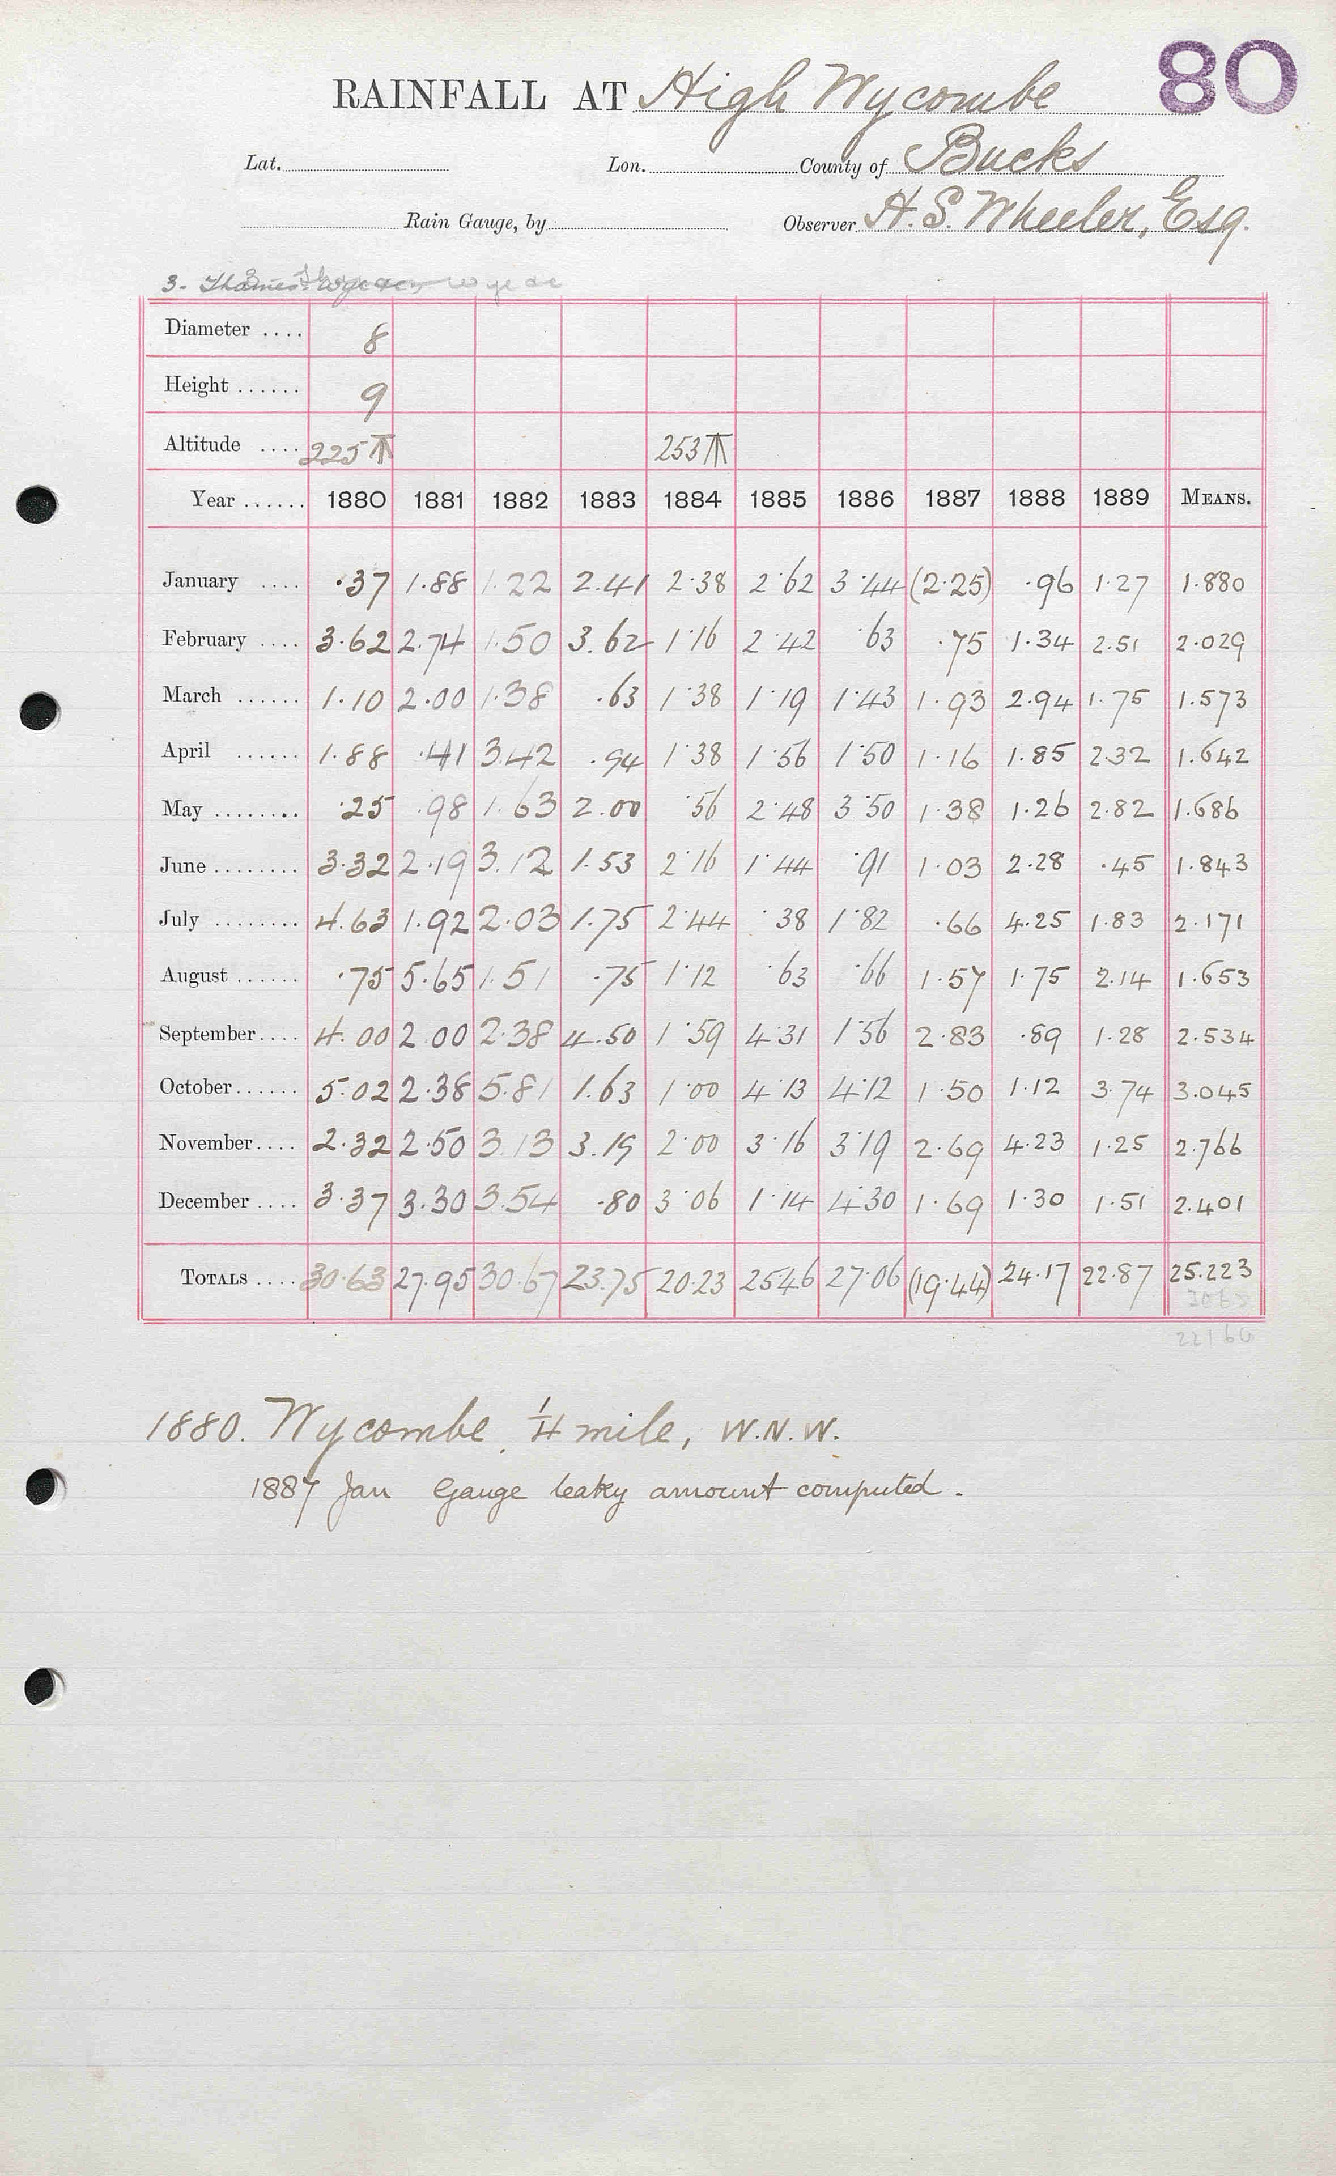 80
RAINFALL AT High Wycombe
Lat. Lon. County of Bucks
Rain Gauge, by Observer H. S. Wheeler, Esq.
3. Thames
Diameter .... 8
Height ...... 9
Altitude .... 225 253
Year ...... 1880 1881 1882 1883 1884 1885 1886 1887 1888 1889 MEANS.
January .... .37 1.88 1.22 2.41 2.38 2.62 3.44 (2.25) .96 1.27 1.880
February .... 3.62 2.74 1.50 3.62 1.16 2.42 .63 .75 1.34 2.51 2.029
March ...... 1.10 2.00 1.38 .63 1.38 1.19 1.43 1.93 2.94 1.75 1.573
April ...... 1.88 .41 3.42 .94 1.38 1.56 1.50 1.16 1.85 2.32 1.642
May ........ .25 .98 1.63 2.00 .56 2.48 3.50 1.38 1.26 2.82 1.686
June ........ 3.32 2.19 3.12 1.53 2.16 1.44 .91 1.03 2.28 .45 1.843
July ........ 4.63 1.92 2.03 1.75 2.44 .38 1.82 .66 4.25 1.83 2.171
August ...... .75 5.65 1.51 .75 1.12 .63 .66 1.57 1.75 2.14 1.653
September .... 4.00 2.00 2.38 4.50 1.59 4.31 1.56 2.83 .89 1.28 2.534
October ...... 5.02 2.38 5.81 1.63 1.00 4.13 4.12 1.50 1.12 3.74 3.045
November .... 2.32 2.50 3.13 3.19 2.00 3.16 3.19 2.69 4.23 1.25 2.766
December .... 3.37 3.30 3.54 .80 3.06 1.14 4.30 1.69 1.30 1.51 2.401
TOTALS .... 30.63 27.95 30.67 23.75 20.23 25.46 27.06 (19.44) 24.17 22.87 25.223
1880. Wycombe 1/4 mile, W.N.W.
1887 Jan Gauge leaky amount computed.